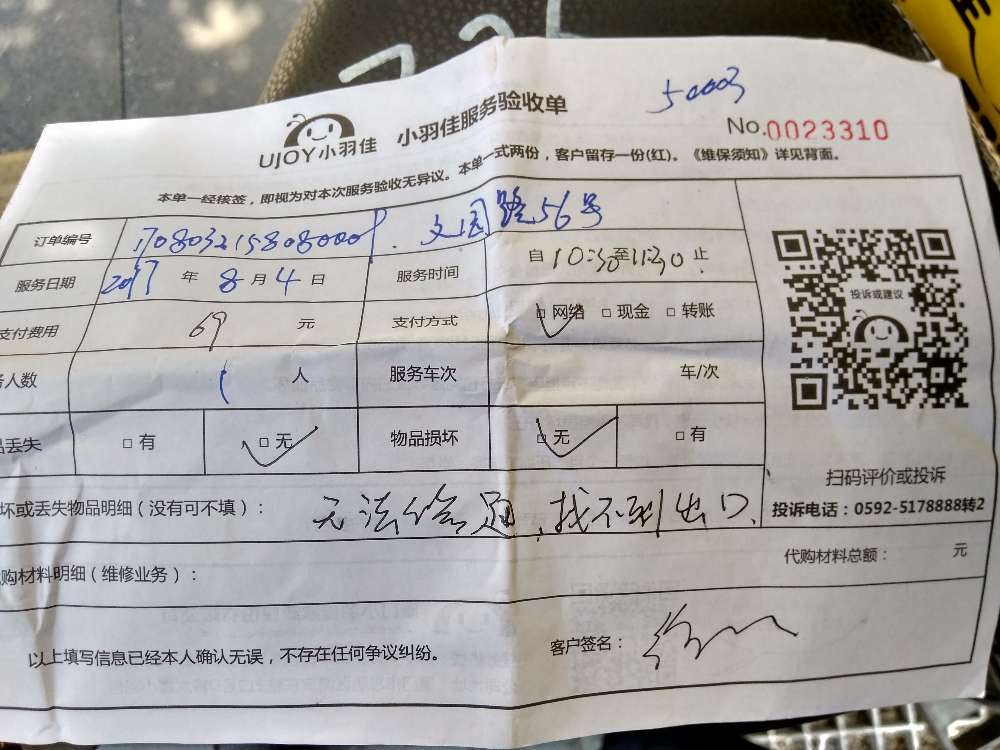 50003
UJOY小羽佳 小羽佳服务验收单
No.0023310
本单一经核签，即视为对本次服务验收无异议。本单一式两份，客户留存一份(红)。《维保须知》详见背面。
订单编号 文园路56号
服务日期 2017 年 8 月 4 日 服务时间 自 10:30 至 11:30 止
支付费用 69 元 支付方式 网络 现金 转账
人数 1 人 服务车次 车/次
丢失 有 无 物品损坏 无 有
投诉或建议
扫码评价或投诉
投诉电话：0592-5178888转2
坏或丢失物品明细（没有可不填）： 无法 找不到出口.
购材料明细（维修业务）： 代购材料总额： 元
以上填写信息已经本人确认无误，不存在任何争议纠纷。 客户签名：